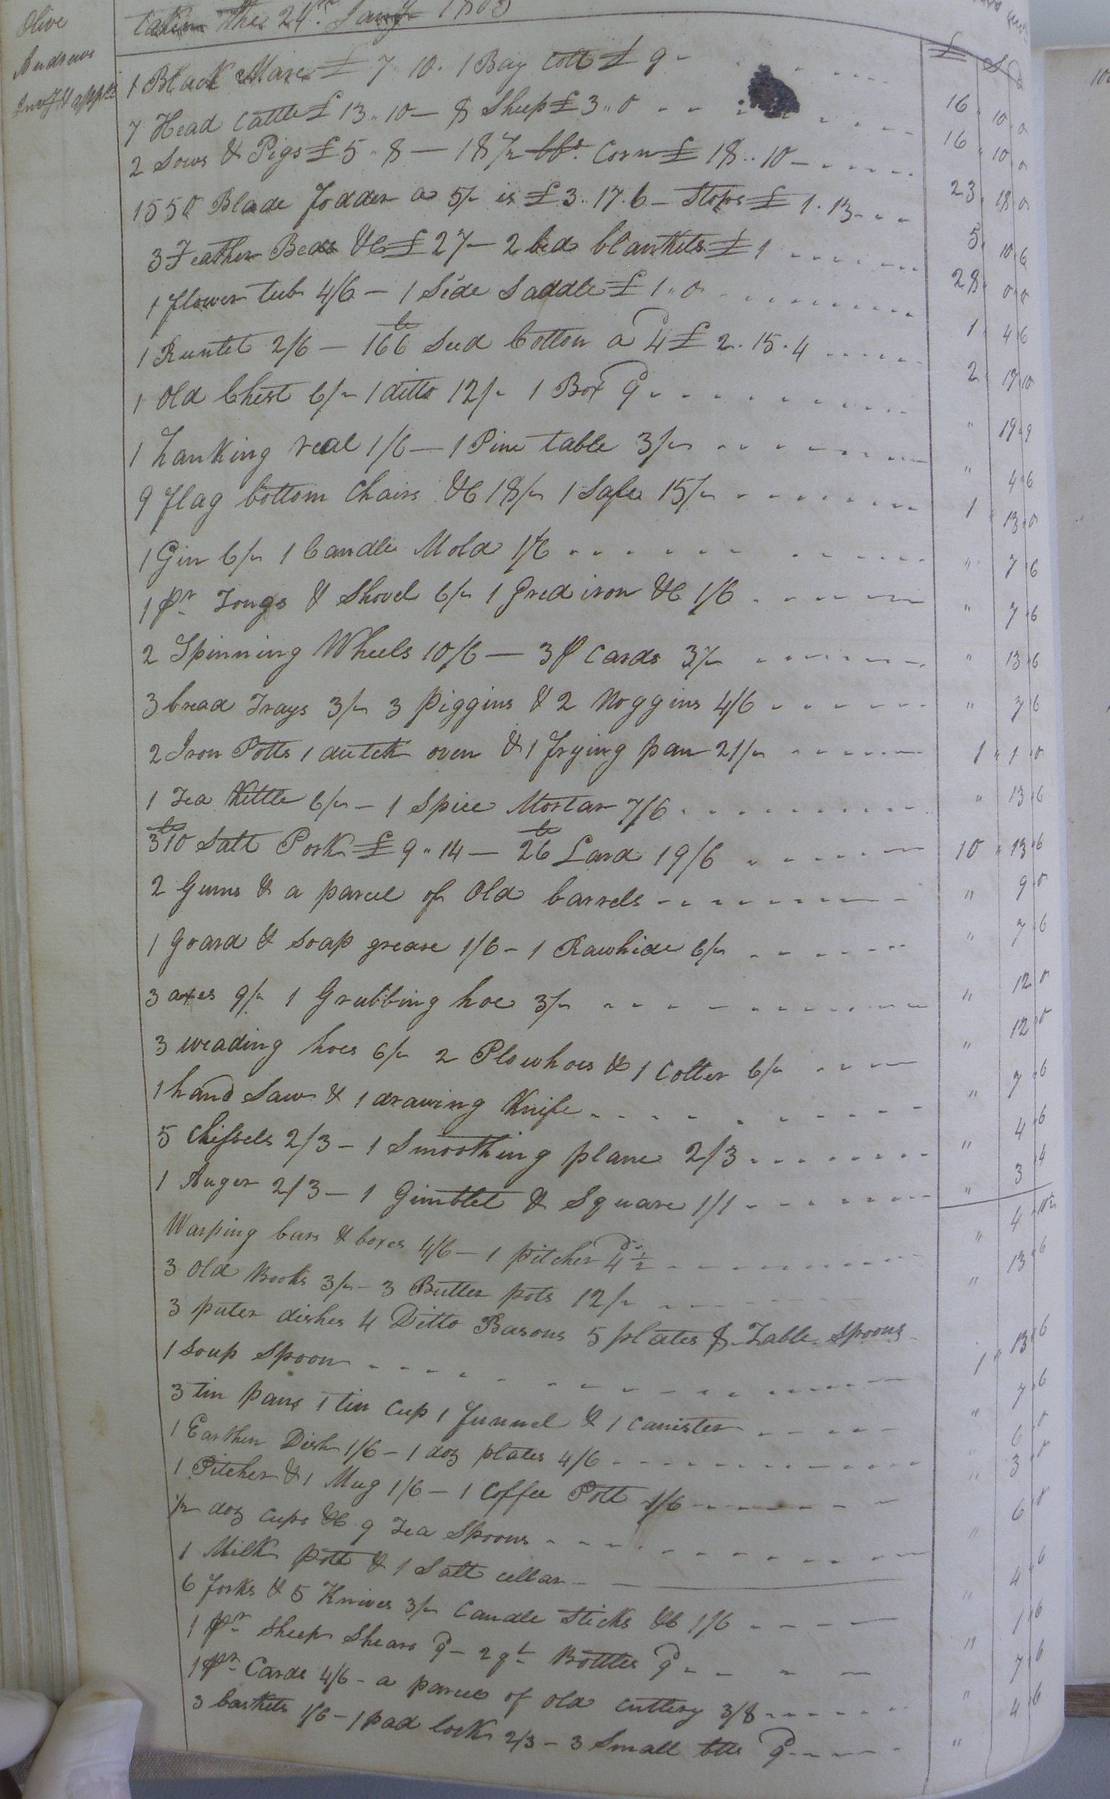 Olive
Andrews
Invy & appt
taken this 24th Jany 1803
£ S D
1 Black Mare £ 7. 10. 1 Bay Colt £ 9 - 16. 10. 0
7 Head Cattle £ 13.. 10 - 8 Sheep £ 3.. 0 16. 10. 0
2 Sows & Pigs £ 5.. 8 - 18 1/2 bbs. Corn £ 18.. 10 - 23. 18. 0
1550 Blade fodder a 5/ is £ 3.. 17. 6 - Stops £ 1. 13 5. 10. 6
3 Feather Beds &C £ 27 - 2 bed blankets £ 1 28. 0. 0
1 flower tub 4/6 - 1 Side Saddle £ 1.. 0 1. 4. 6
1 Runtet 2/6 - 166 lb Seed Cotton a 4d £ 2. 15. 4 2. 17. 10
1 Old Chest 6/- 1 ditto 12/- 1 Box 9d " 19. 9
1 hanking real 1/6 - 1 Pine table 3/- " 4. 6
9 flag bottom Chairs &C 18/- 1 Safe 15/- 1 " 13. 0
1 Gin 6/- 1 Candle Mold 1/6 " 7. 6
1 pr Tongs & Shovel 6/- 1 Gred iron &C 1/6 " 7. 6
2 Spinning Wheels 10/6 - 3 p Cards 3/- " 13. 6
3 bread Trays 3/- 3 Piggins & 2 Noggins 4/6 " 7. 6
2 Iron Potts 1 dutch oven & 1 frying pan 21/- 1 " 1. 0
1 Tea Kittle 6/- - 1 Spice Mortar 7/6 " 13. 6
310 lb Salt Pork £ 9.. 14 - 26 lb Lard 19/6 10 " 13. 6
2 Gums & a parcel of Old barrels " 9. 0
1 Goard & Soap grease 1/6 - 1 Rawhide 6/- " 7. 6
3 axes 9/- 1 Grubbing hoe 3/- " 12. 0
3 weading hoes 6/- 2 Plowhoes & 1 Colter 6/- " 12. 0
1 hand Saw & 1 drawing Knife " 7. 6
5 Chissels 2/3 - 1 Smoothing plane 2/3 " 4. 6
1 Auger 2/3 - 1 Gimblet & Square 1/1 " 3. 4
Warping bars & boxes 4/6 - 1 pitcher 4 1/2d " 4. 10 1/2
3 Old Books 3/- - 3 Butter pots 12/- " 13. 6
3 puter dishes 4 Ditto Basons 5 plates 8 Table Spoons
1 Soup Spoon 1 " 13. 6
3 tin pans 1 tin Cup 1 funnel & 1 canister " 7. 6
1 Earthen Dish 1/6 - 1 doz plates 4/6 " 6. 0
1 Pitcher & 1 Mug 1/6 - 1 Coffee Pott 1/6 " 3. 0
1/2 doz Cups &C 9 Tea Spoons " 6. 0
1 Milk pott & 1 Salt cellar
6 forks & 5 Knives 3/- Candle Sticks &C 1/6 " 4. 6
1 pr Sheep Shears 9d - 2 qt Bottles 9d " 1. 6
1 pr Cards 4/6 - a parcel of old cuttery 3/8 " 7. 6
3 baskets 1/6 - 1 pad lock 2/3 - 3 Small btls 9d " 4. 6